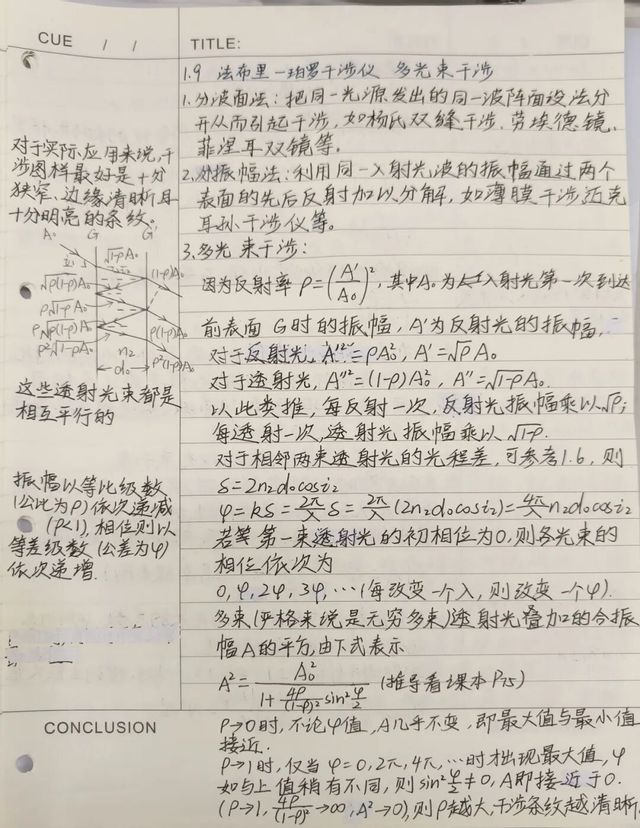 CUE / /
TITLE:
1.9 法布里-珀罗干涉仪 多光束干涉
1.分波面法：把同一光源发出的同一波阵面设法分
开从而引起干涉，如杨氏双缝干涉、劳埃德镜、
菲涅耳双镜等。
2.分振幅法：利用同一入射光波的振幅通过两个
表面的先后反射加以分解，如薄膜干涉迈克
耳孙干涉仪等。
3.多光束干涉：
因为反射率 ρ=(A'/A₀)²，其中A₀为入射光第一次到达
前表面G时的振幅，A'为反射光的振幅，
对于反射光，A'²=ρA₀²，A'=√ρA₀
对于透射光，A''²=(1-ρ)A₀²，A''=√1-ρA₀.
以此类推，每反射一次，反射光振幅乘以√ρ；
每透射一次，透射光振幅乘以√1-ρ.
对于相邻两束透射光的光程差，可参考1.6，则
δ=2n₂d₀cosi₂
φ=kδ=2π/λ δ=2π/λ(2n₂d₀cosi₂)=4π/λ n₂d₀cosi₂
若等第一束透射光的初相位为0，则各光束的
相位依次为
0,φ,2φ,3φ,…(每改变一个λ，则改变一个φ).
多束(严格来说是无穷多束)透射光叠加的合振
幅A的平方，由下式表示
A²=A₀²/(1+4ρ/(1-ρ)² sin²φ/2) (推导看课本P75)
对于实际应用来说，干
涉图样最好是十分
狭窄、边缘清晰且
十分明亮的条纹。
A₀ G G'
i₁ √1-ρA₀
√ρ(1-ρ)A₀ (1-ρ)A₀
ρ√1-ρA₀
ρ√ρ(1-ρ)A₀ ρ(1-ρ)A₀
ρ²√1-ρA₀ n₂ ρ²(1-ρ)A₀
d₀
这些透射光束都是
相互平行的
振幅以等比级数
(公比为ρ)依次递减
(ρ<1)，相位则以
等差级数(公差为φ)
依次递增.
CONCLUSION
ρ→0时，不论φ值，A几乎不变，即最大值与最小值
接近.
ρ→1时，仅当φ=0,2π,4π,…时才出现最大值，φ
如与上值稍有不同，则sin²φ/2≠0，A即接近于0.
(ρ→1，4ρ/(1-ρ)²→∞，A²→0)，则ρ越大，干涉条纹越清晰.